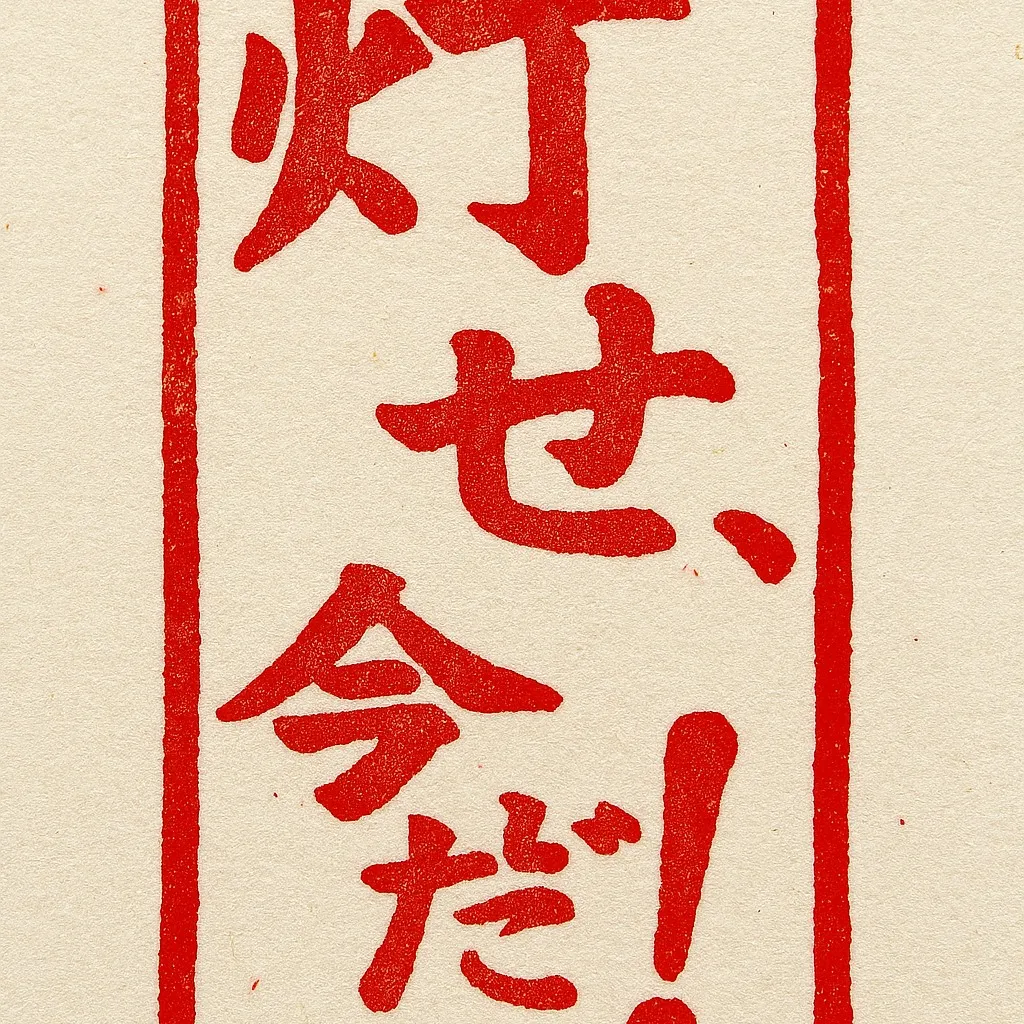 灯せ、今だ！